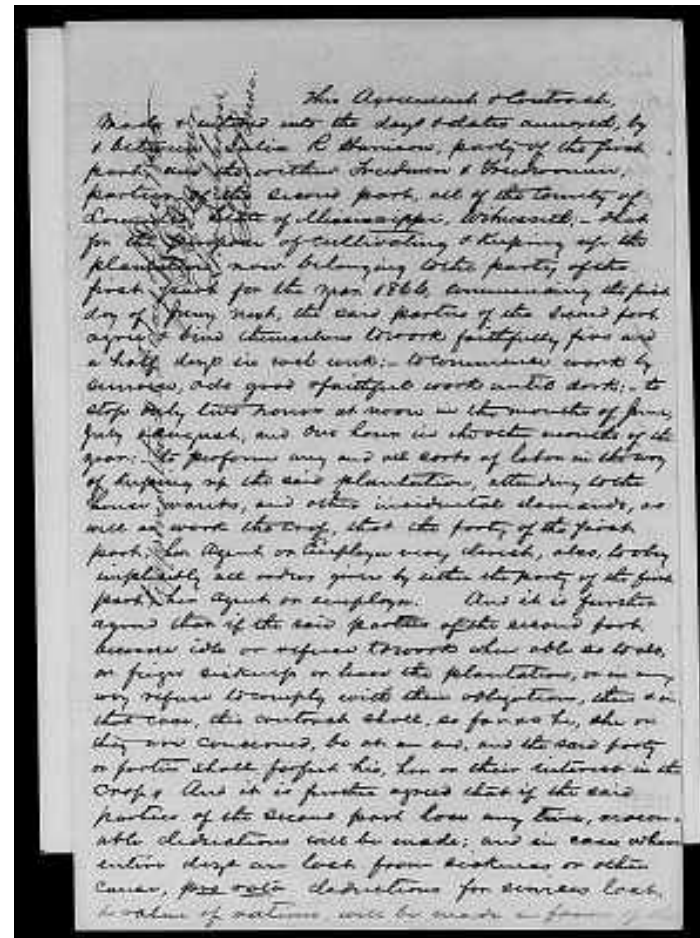 This Agreement & Contract,
Made & entered into the days & dates annexed, by
& between Julia R Harrison, party of the first
part, and the within Freedmen & Freedwomen,
parties of the second part, all of the County of
Lowndes State of Mississippi, Witnesseth, - that
for the purpose of cultivating & keeping up the
plantation, now belonging to the party of the
first part for the year 1866, commencing the first
day of next, the said parties of the second part
agree & bind themselves to work faithfully five and
a half days in each week: - to commence work by
sunrise, & do good & faithful work until dark: - to
stop only two hours at noon in the months of June,
July & August, and one hour in the other months of the
year: - to perform any and all sorts of labor in the way
of keeping up the said plantation, attending to the
house wants, and other incidental demands, as
well as work the crop, that the party of the first
part, her Agent or Employee may direct, also, to obey
implicitly all orders given by either the party of the first
part, her Agent or employee. And it is further
agreed that if the said parties of the second part,
become idle or refuse to work when able so to do,
or feign sickness or leave the plantation, or in any
way refuse to comply with their obligations, then in
that case, this contract shall, so far as he, she or
they are concerned, be at an end, and the said party
or parties shall forfeit his, her or their interest in the
crop. And it is further agreed that if the said
parties of the second part lose any time, reason-
able deductions will be made; and in case where
entire days are lost from sickness or other
cause, pro rata deductions for services lost,
& value of rations, will be made in favor of the